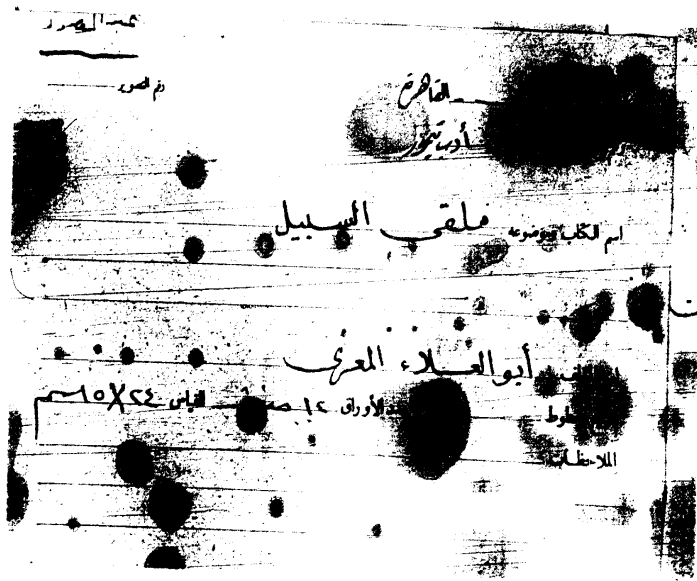 رقم الصور
القاهرة
أدب تيمور
اسم الكتاب وموضوعه ملقى السبيل
أبو العلاء المعري
الأوراق ١٢ القياس ٢٤X١٥سم
الملاحظات